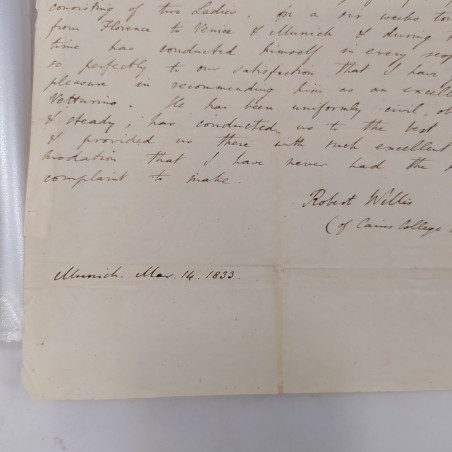 consisting of two Ladies, on a six weeks tou
from Florence to Venice & Munich & during
time has conducted himself in every resp
so perfectly to our satisfaction that I have
pleasure in recommending him as an excell
Vetturino. He has been uniformly civil, o
& steady, has conducted us to the best
& provided us there with such excellent
modation that I have never had the
complaint to make.
Robert Willis
(of Caius College
Munich. Mar. 14. 1833.